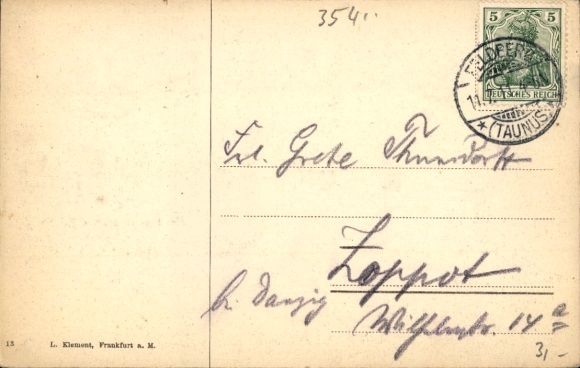 354..
5 5
DEUTSCHES REICH
FELDBERG
(TAUNUS)
Frl. Grete Thunsdorff
Zoppot
bei Danzig
Wilhelmstr. 14 a
3,-
13 L. Klement, Frankfurt a. M.